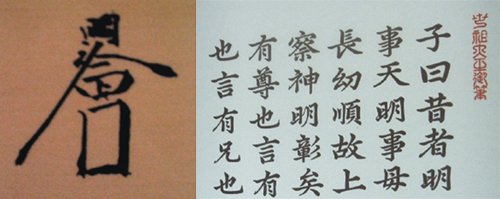 世祖大王御筆
子曰昔者明
事天明事毋
長幼順故上
察神明彰矣
有尊也言有
也言有兄也